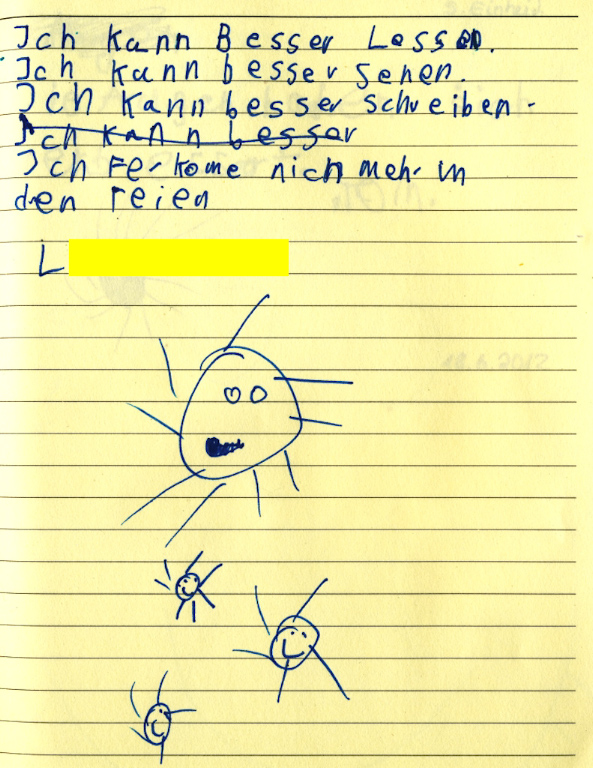 Ich kann Besser Lessen.
Ich kann besser sehen.
Ich kann besser schreiben.
Ich kann besser
Ich Ferkome nich mehr in
den reien
L